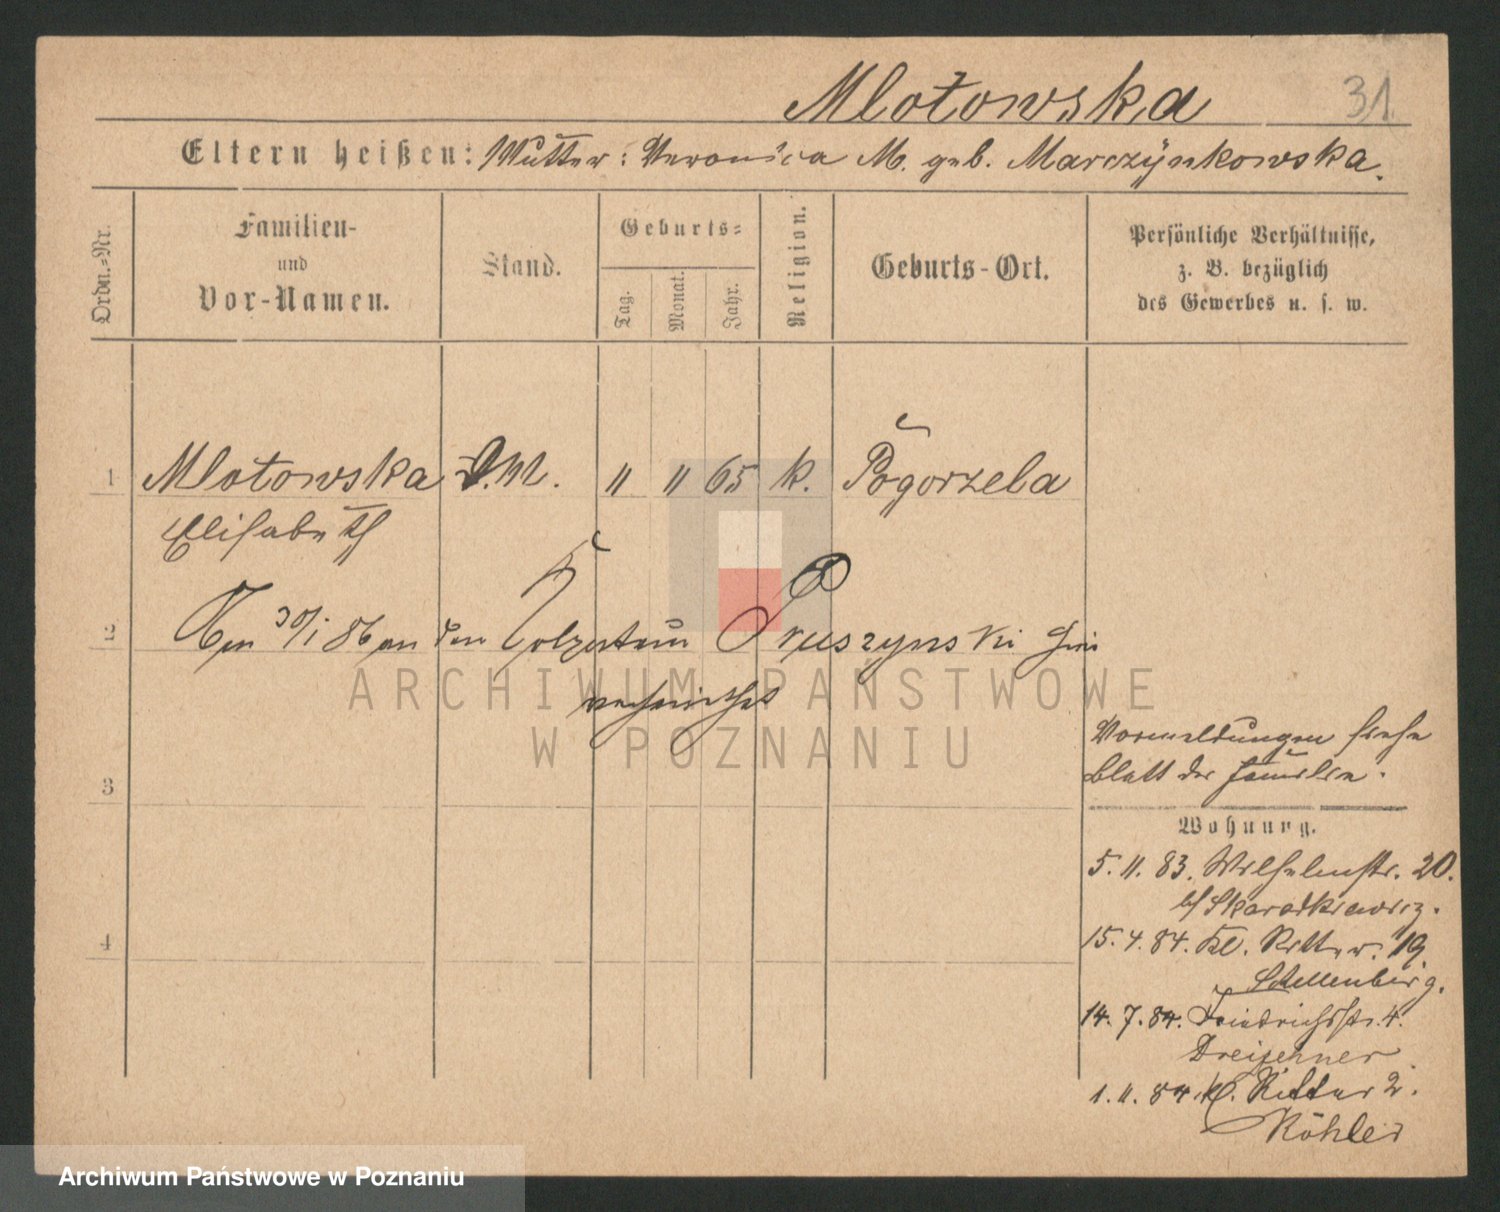 Mlotowska 31.
Eltern heißen: Mutter: Veronica M. geb. Marczynkowska.
Ordn.-Nr.
Familien-
und
Vor-Namen.
Stand.
Geburts-
Tag.
Monat.
Jahr.
Religion.
Geburts-Ort.
Persönliche Verhältnisse,
z. B. bezüglich
des Gewerbes u. s. w.
1 Mlotowska D.M. " " 65 k. Pogorzela
Elisabeth
2 Am 30/1 86 an den Pruszynski hier
verheirathet
ARCHIWUM PAŃSTWOWE
W POZNANIU
Vormeldungen siehe
Blatt der Familie.
3
Wohnung.
5. 11. 83. Wilhelmstr. 20.
b/ Skaradkiewicz.
4
15. 4. 84. Kl. Ritter. 19.
Schellenberg.
14. 7. 84. Friedrichstr. 4.
Dreizehner
1. 11. 84. Kl. Ritter 2.
Köhler
Archiwum Państwowe w Poznaniu